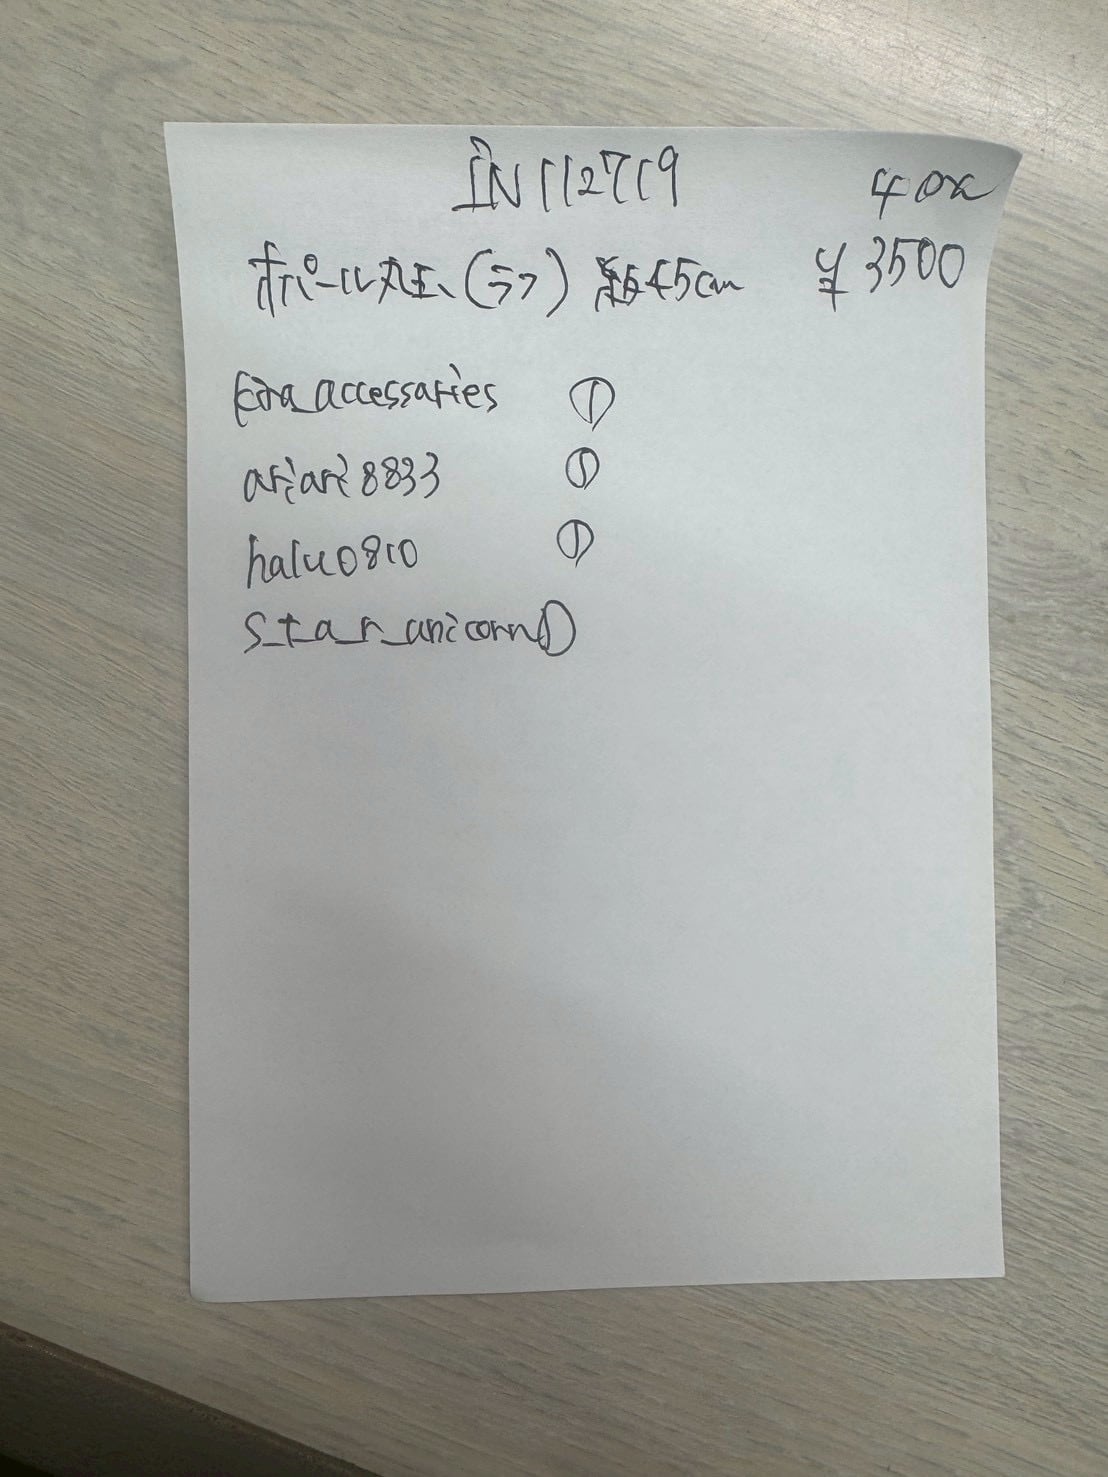 IN112719 40x
オパール丸玉(ラフ) 約45cm ¥3500
Eda_accessaries ①
ariari8833 ①
halu0810 ①
s_t_a_r_unicorn ①